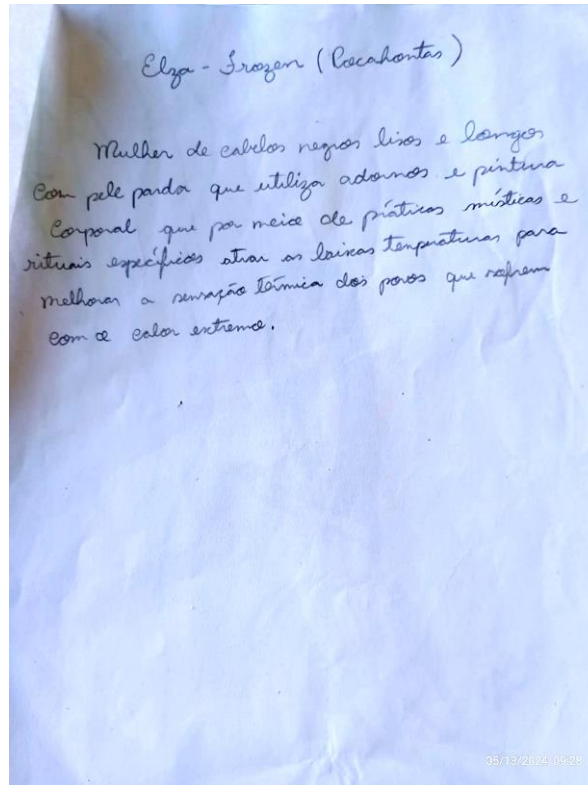 Elza - Frozen (Pocahontas)
Mulher de cabelos negros lisos e longos
com pele parda que utiliza adornos e pintura
corporal que por meio de práticas místicas e
rituais específicos atrai as baixas temperaturas para
melhorar a sensação térmica dos povos que sofrem
com o calor extremo.
05/13/2024 09:28